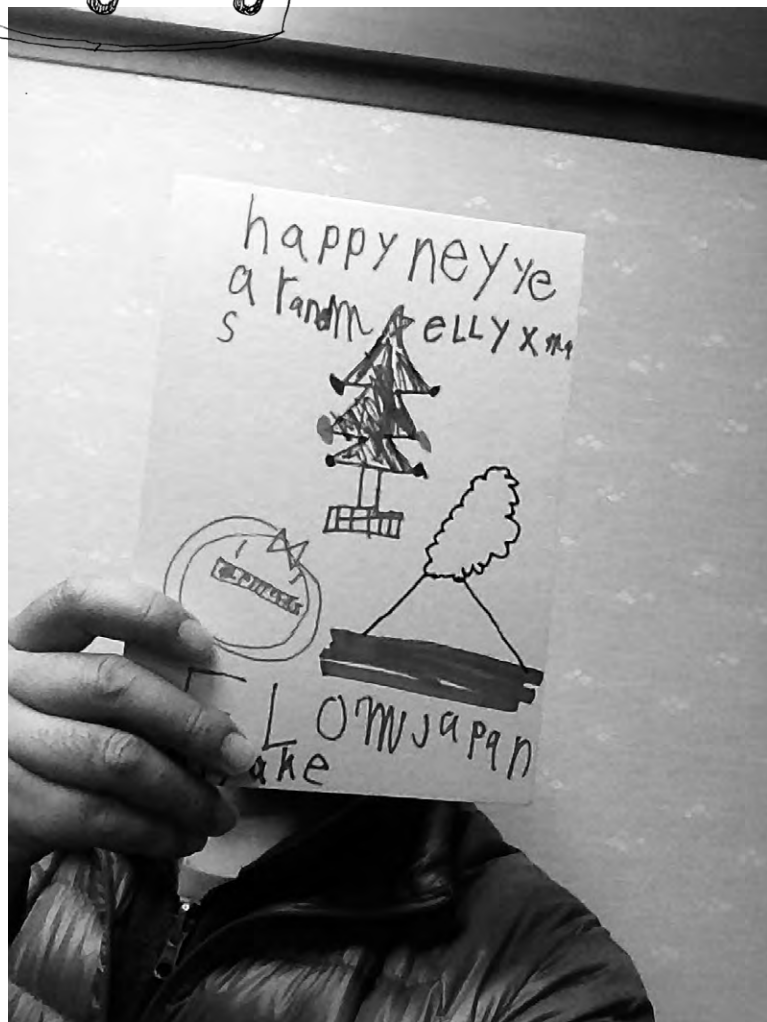 happyneyye
a randm eLLYxma
s
FLOmJapan